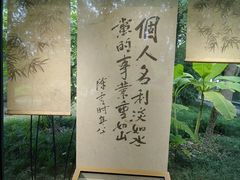 個人名利淡如水
黨的事業重如山
陳雲時年